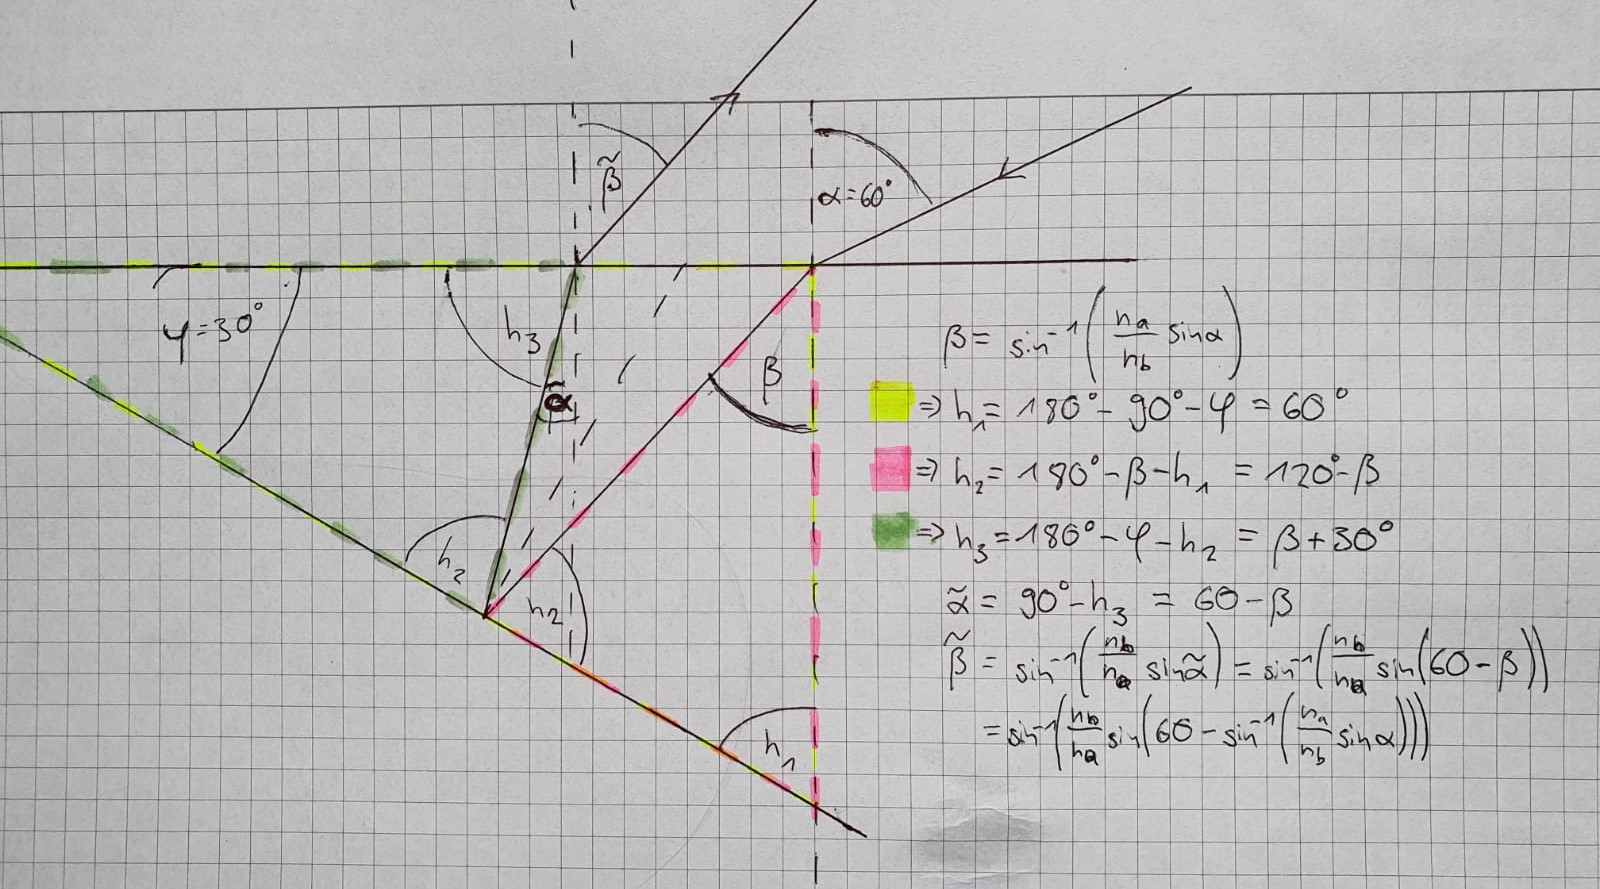 β̃
α=60°
φ=30°
h₃
α̃
β
h₂
h₂
h₁
β = sin⁻¹(nₐ/n_b sinα)
⇒ h₁ = 180° - 90° - φ = 60°
⇒ h₂ = 180° - β - h₁ = 120° - β
⇒ h₃ = 180° - φ - h₂ = β + 30°
α̃ = 90° - h₃ = 60 - β
β̃ = sin⁻¹(n_b/nₐ sinα̃) = sin⁻¹(n_b/nₐ sin(60 - β))
= sin⁻¹(n_b/nₐ sin(60 - sin⁻¹(nₐ/n_b sinα)))